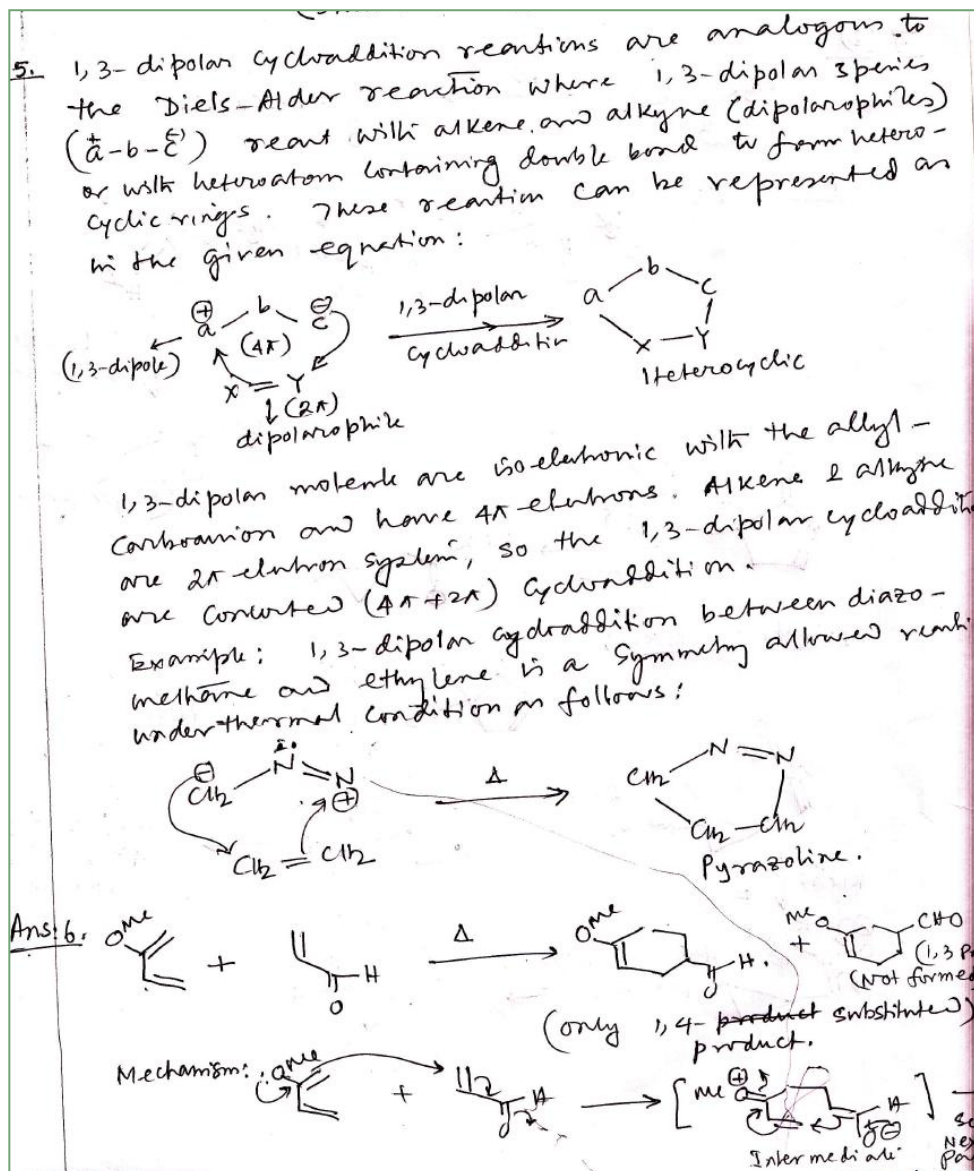 5. 1,3-dipolar cycloaddition reactions are analogous to
the Diels-Alder reaction where 1,3-dipolar species
(a-b-c) react with alkene and alkyne (dipolarophiles)
or with heteroatom containing double bond to form hetero-
cyclic rings. These reaction can be represented as
in the given equation:
⊕ a b ⊖ c
(1,3-dipole)
(4π)
X = Y
↓ (2π)
dipolarophile
1,3-dipolar
cycloaddition
a b c
X-Y
Heterocyclic
1,3-dipolar molecule are isoelectronic with the allyl-
carbanion and have 4π-electrons. Alkene & alkyne
are 2π electron system, so the 1,3-dipolar
are concerted (4π+2π) cycloaddition.
Example: 1,3-dipolar cycloaddition between diazo-
methane and ethylene is a symmetry allowed
under thermal condition as follows:
⊖ CH2 N=N ⊕
CH2=CH2
Δ
CH2 N=N
CH2-CH2
Pyrazoline.
Ans: 6. OMe + H O Δ OMe H. O + MeO CHO
(1,3
(Not formed
(only 1,4- substituted)
product.
Mechanism: OMe + H [ Me ⊕ O H O ⊖ ]
Intermediate